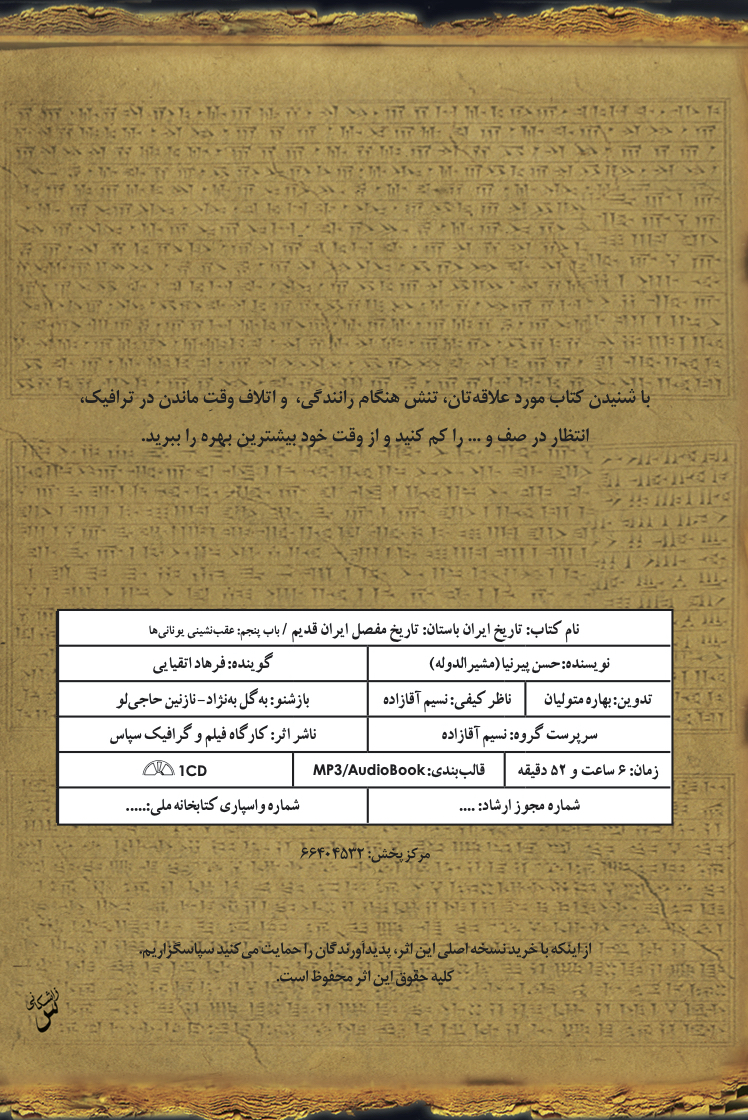 با شنیدن کتاب مورد علاقه‌تان، تنش هنگام رانندگی، و اتلاف وقت ماندن در ترافیک،
انتظار در صف و ... را کم کنید و از وقت خود بیشترین بهره را ببرید.
نام کتاب: تاریخ ایران باستان: تاریخ مفصل ایران قدیم / باب پنجم: عقب‌نشینی یونانی‌ها
نویسنده: حسن پیرنیا (مشیرالدوله) گوینده: فرهاد اتقیایی
تدوین: بهاره متولیان ناظر کیفی: نسیم آقازاده بازشنو: به‌گل به‌نژاد - نازنین حاجی‌لو
سرپرست گروه: نسیم آقازاده ناشر اثر: کارگاه فیلم و گرافیک سپاس
زمان: ۶ ساعت و ۵۲ دقیقه قالب‌بندی: MP3/AudioBook 1CD
شماره مجوز ارشاد: .... شماره واسپاری کتابخانه ملی:.....
مرکز پخش: ۶۶۴۰۴۵۳۲
از اینکه با خرید نسخه اصلی این اثر، پدیدآورندگان را حمایت می‌کنید سپاسگزاریم.
کلیه حقوق این اثر محفوظ است.